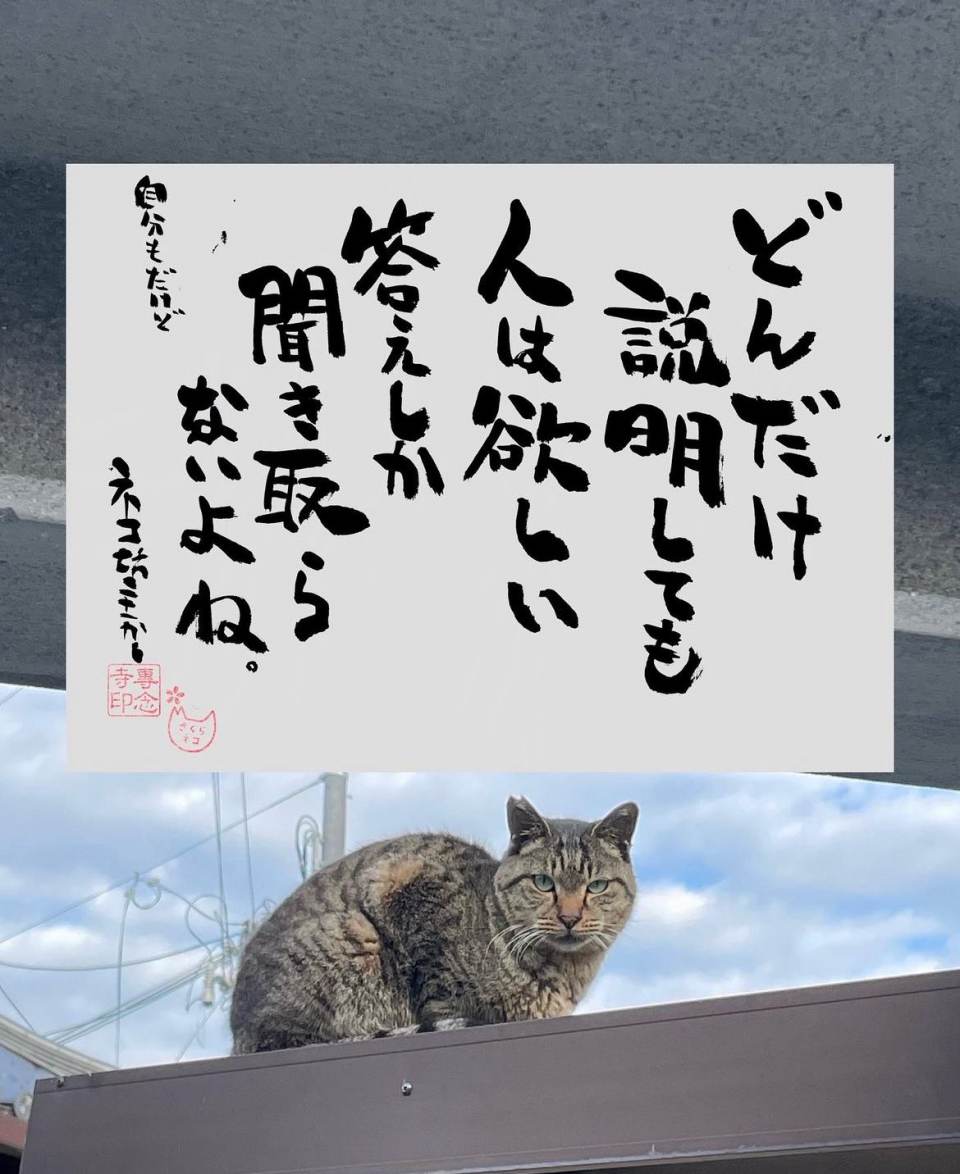 どんだけ
説明しても
人は欲しい
答えしか
聞き取ら
ないよね。
自分もだけど
ネコ坊主
專念
寺印
さくら
ネコ